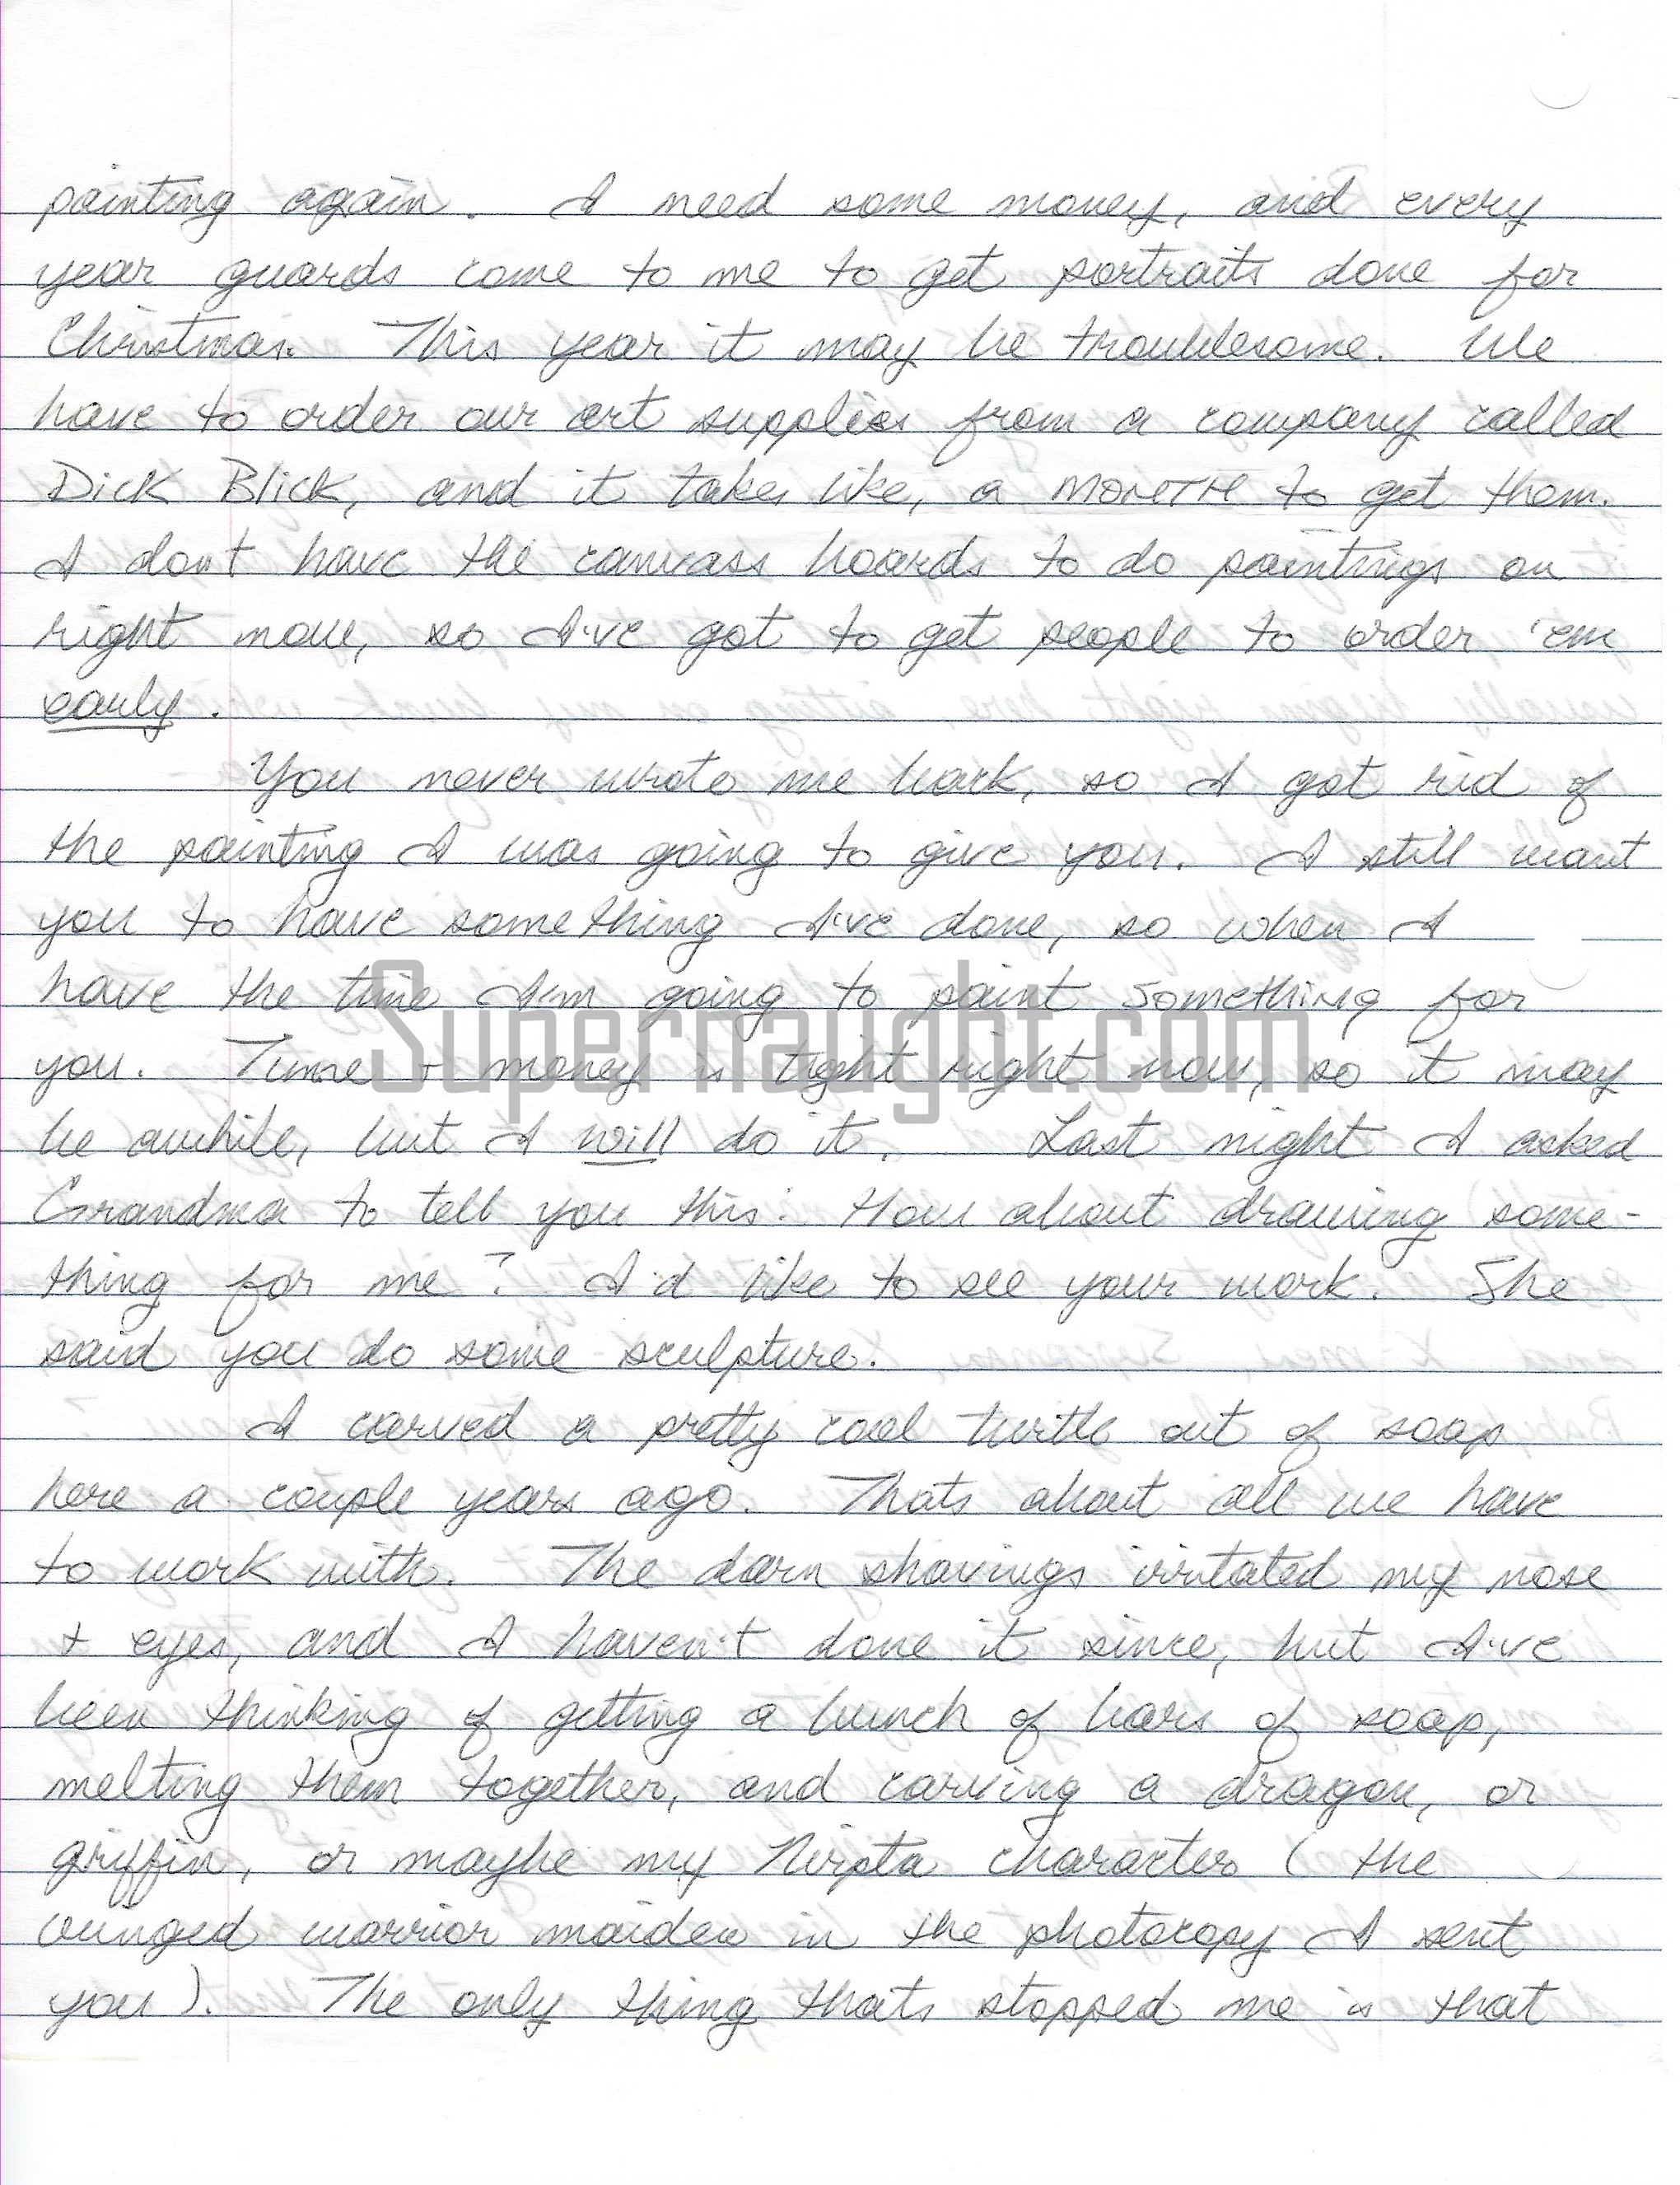 painting again. I need some money, and every
year guards come to me to get portraits done for
Christmas. This year it may be troublesome. We
have to order our art supplies from a company called
Dick Blick, and it takes like, a MONTH to get them.
I dont have the canvass boards to do paintings on
right now, so I've got to get people to order 'em
early.
You never wrote me back, so I got rid of
the painting I was going to give you. I still want
you to have something I've done, so when I
have the time I'm going to paint something for
Supernaught.com
you. Time + money is tight right now, so it may
be awhile, but I will do it. Last night I asked
Grandma to tell you this: How about drawing some-
thing for me? I'd like to see your work. She
said you do some sculpture.
I carved a pretty cool turtle out of soap
here a couple years ago. Thats about all we have
to work with. The darn shavings irritated my nose
+ eyes, and I haven't done it since, but I've
been thinking of getting a bunch of bars of soap,
melting them together, and carving a dragon, or
griffin, or maybe my character (the
winged warrior maiden in the photocopy I sent
you). The only thing thats stopped me is that